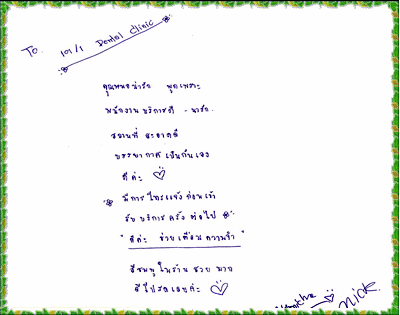 To. 101/1 Dental Clinic
คุณหมอน่ารัก พูดเพราะ
พนักงาน บริการดี - น่ารัก.
สถานที่ สะอาดดี
บรรยากาศ เป็นกันเอง
ดีค่ะ
มีการโทรแจ้ง ก่อนเข้า
รับ บริการ ครั้ง ต่อไป
" ดีค่ะ ช่วยเตือน ความจำ "
สีชมพู ในร้าน สวย มาก
ค่ะ
nick.